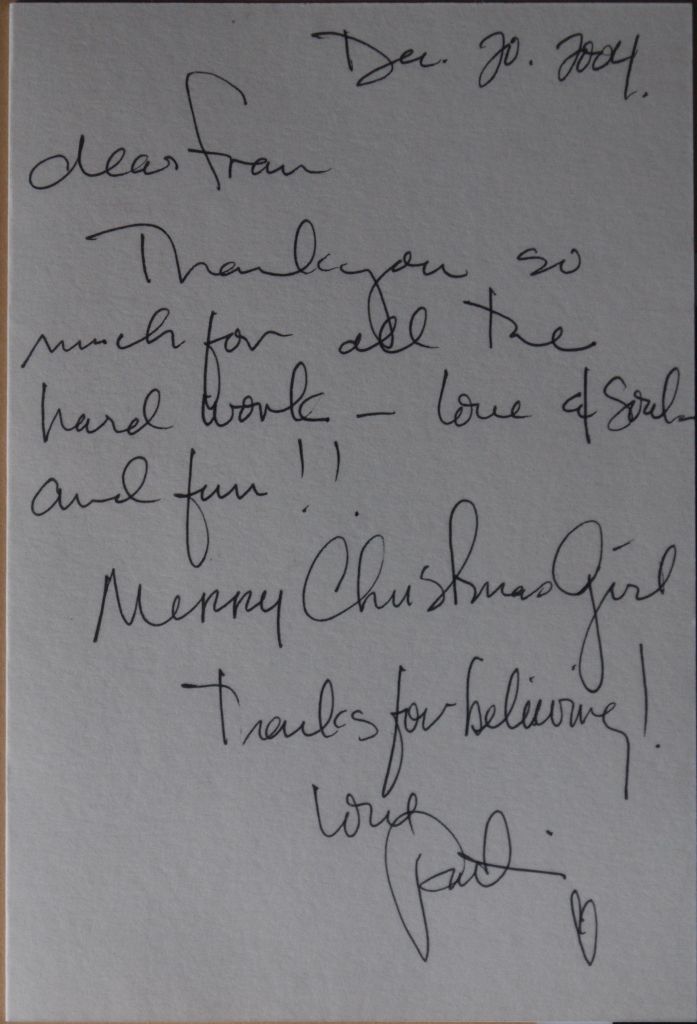 Dec. 20. 2004.
dear Fran
Thank you so
much for all the
hard work – love & soul
and fun!!
Merry Christmas Girl
Thanks for believing!
love
Patti